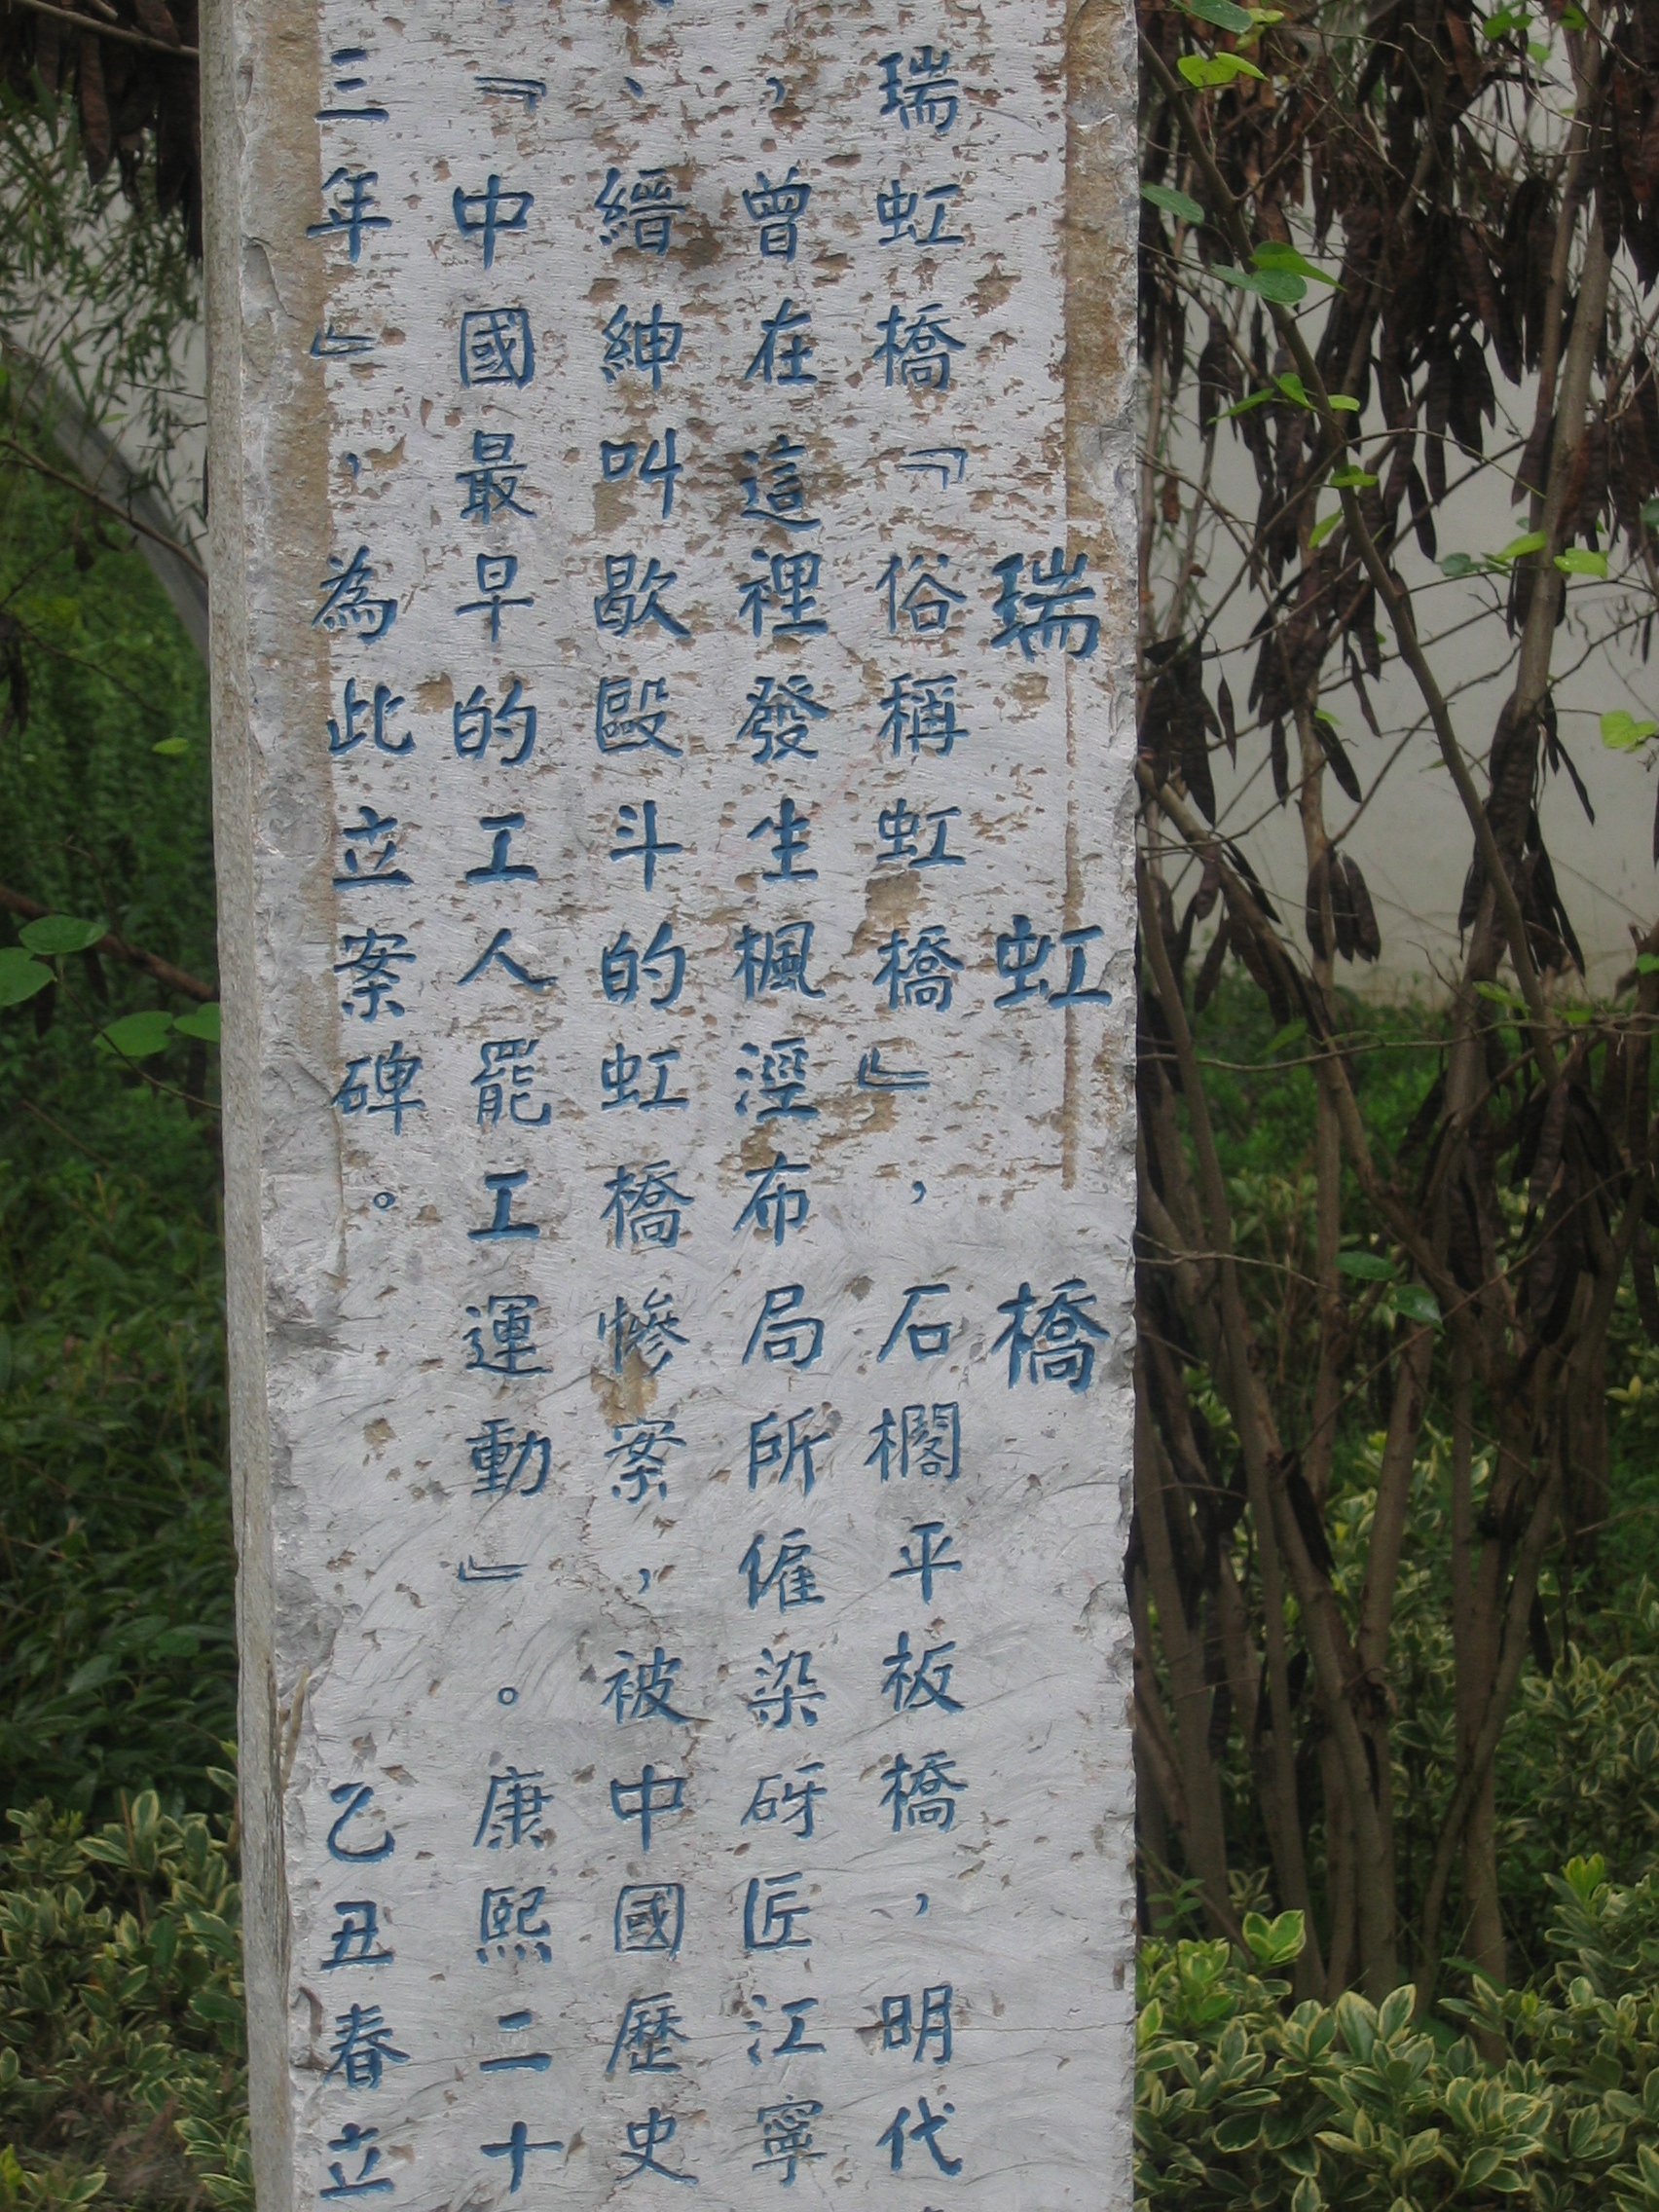 瑞虹橋
瑞虹橋『俗稱虹橋』，石欄平板橋，明代
，曾在這裡發生楓涇布局所僱染砑匠江寧
、縉紳叫歇毆斗的虹橋慘案，被中國歷史
『中國最早的工人罷工運動』。康熙二十
三年』，為此立案碑。　乙丑春立